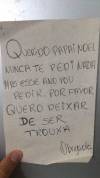 QUERIDO PAPAI NOEL
NUNCA TE PEDI NADA
MAS ESSE ANO VOU
PEDIR. POR FAVOR
QUERO DEIXAR
DE SER
TROUXA
Obrigada